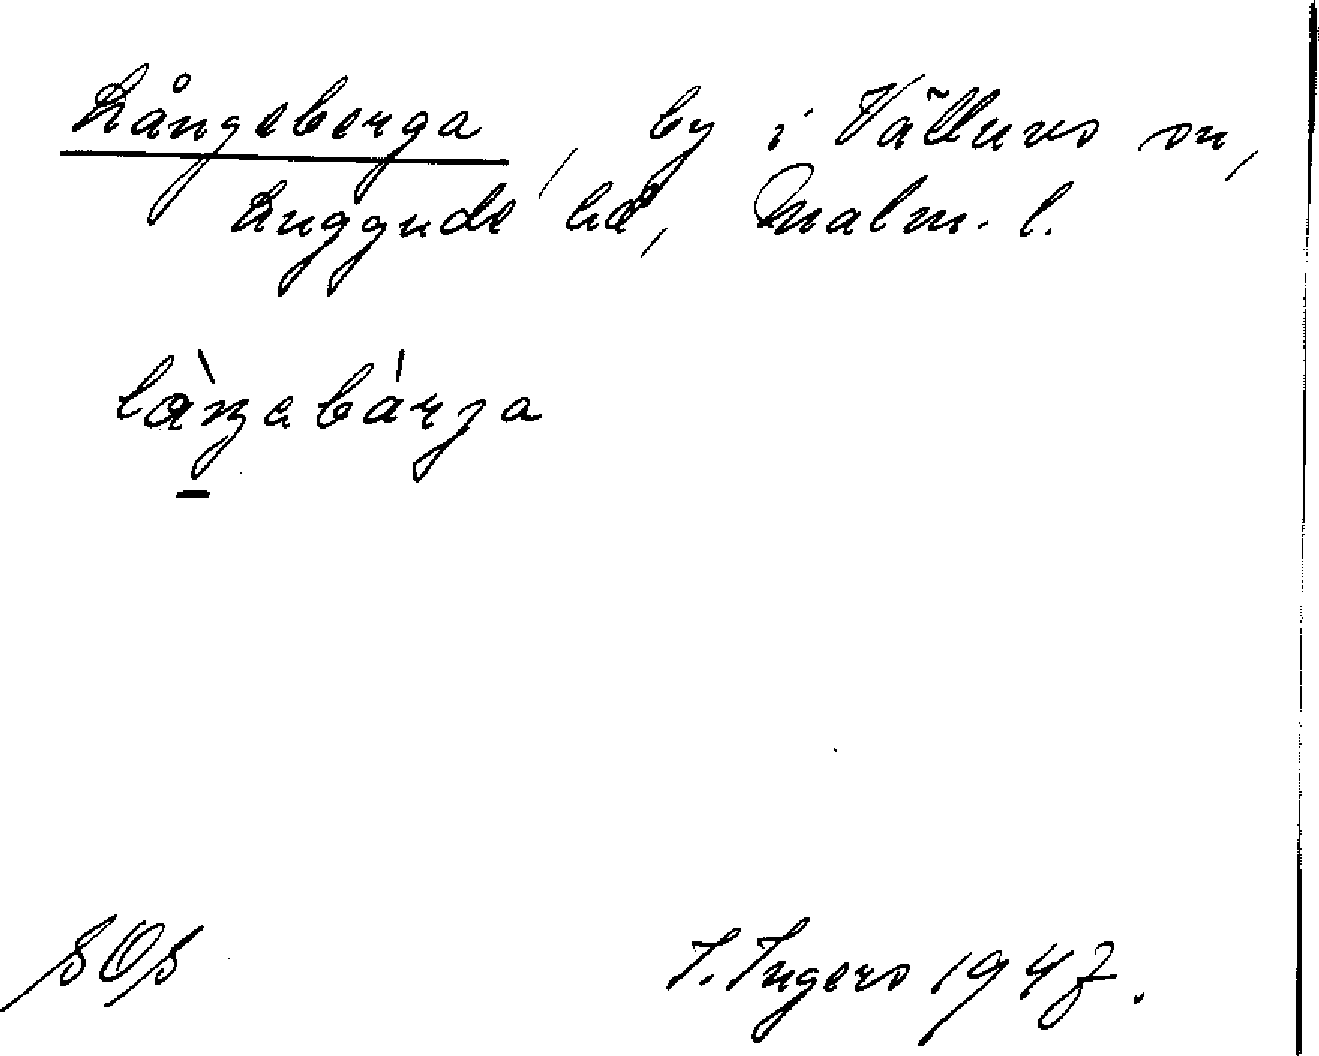 Långeberga, by i Välluvs sn,
Luggude hd, Malm. l.
làŋabárja
SOS
I. Ingers 1947.